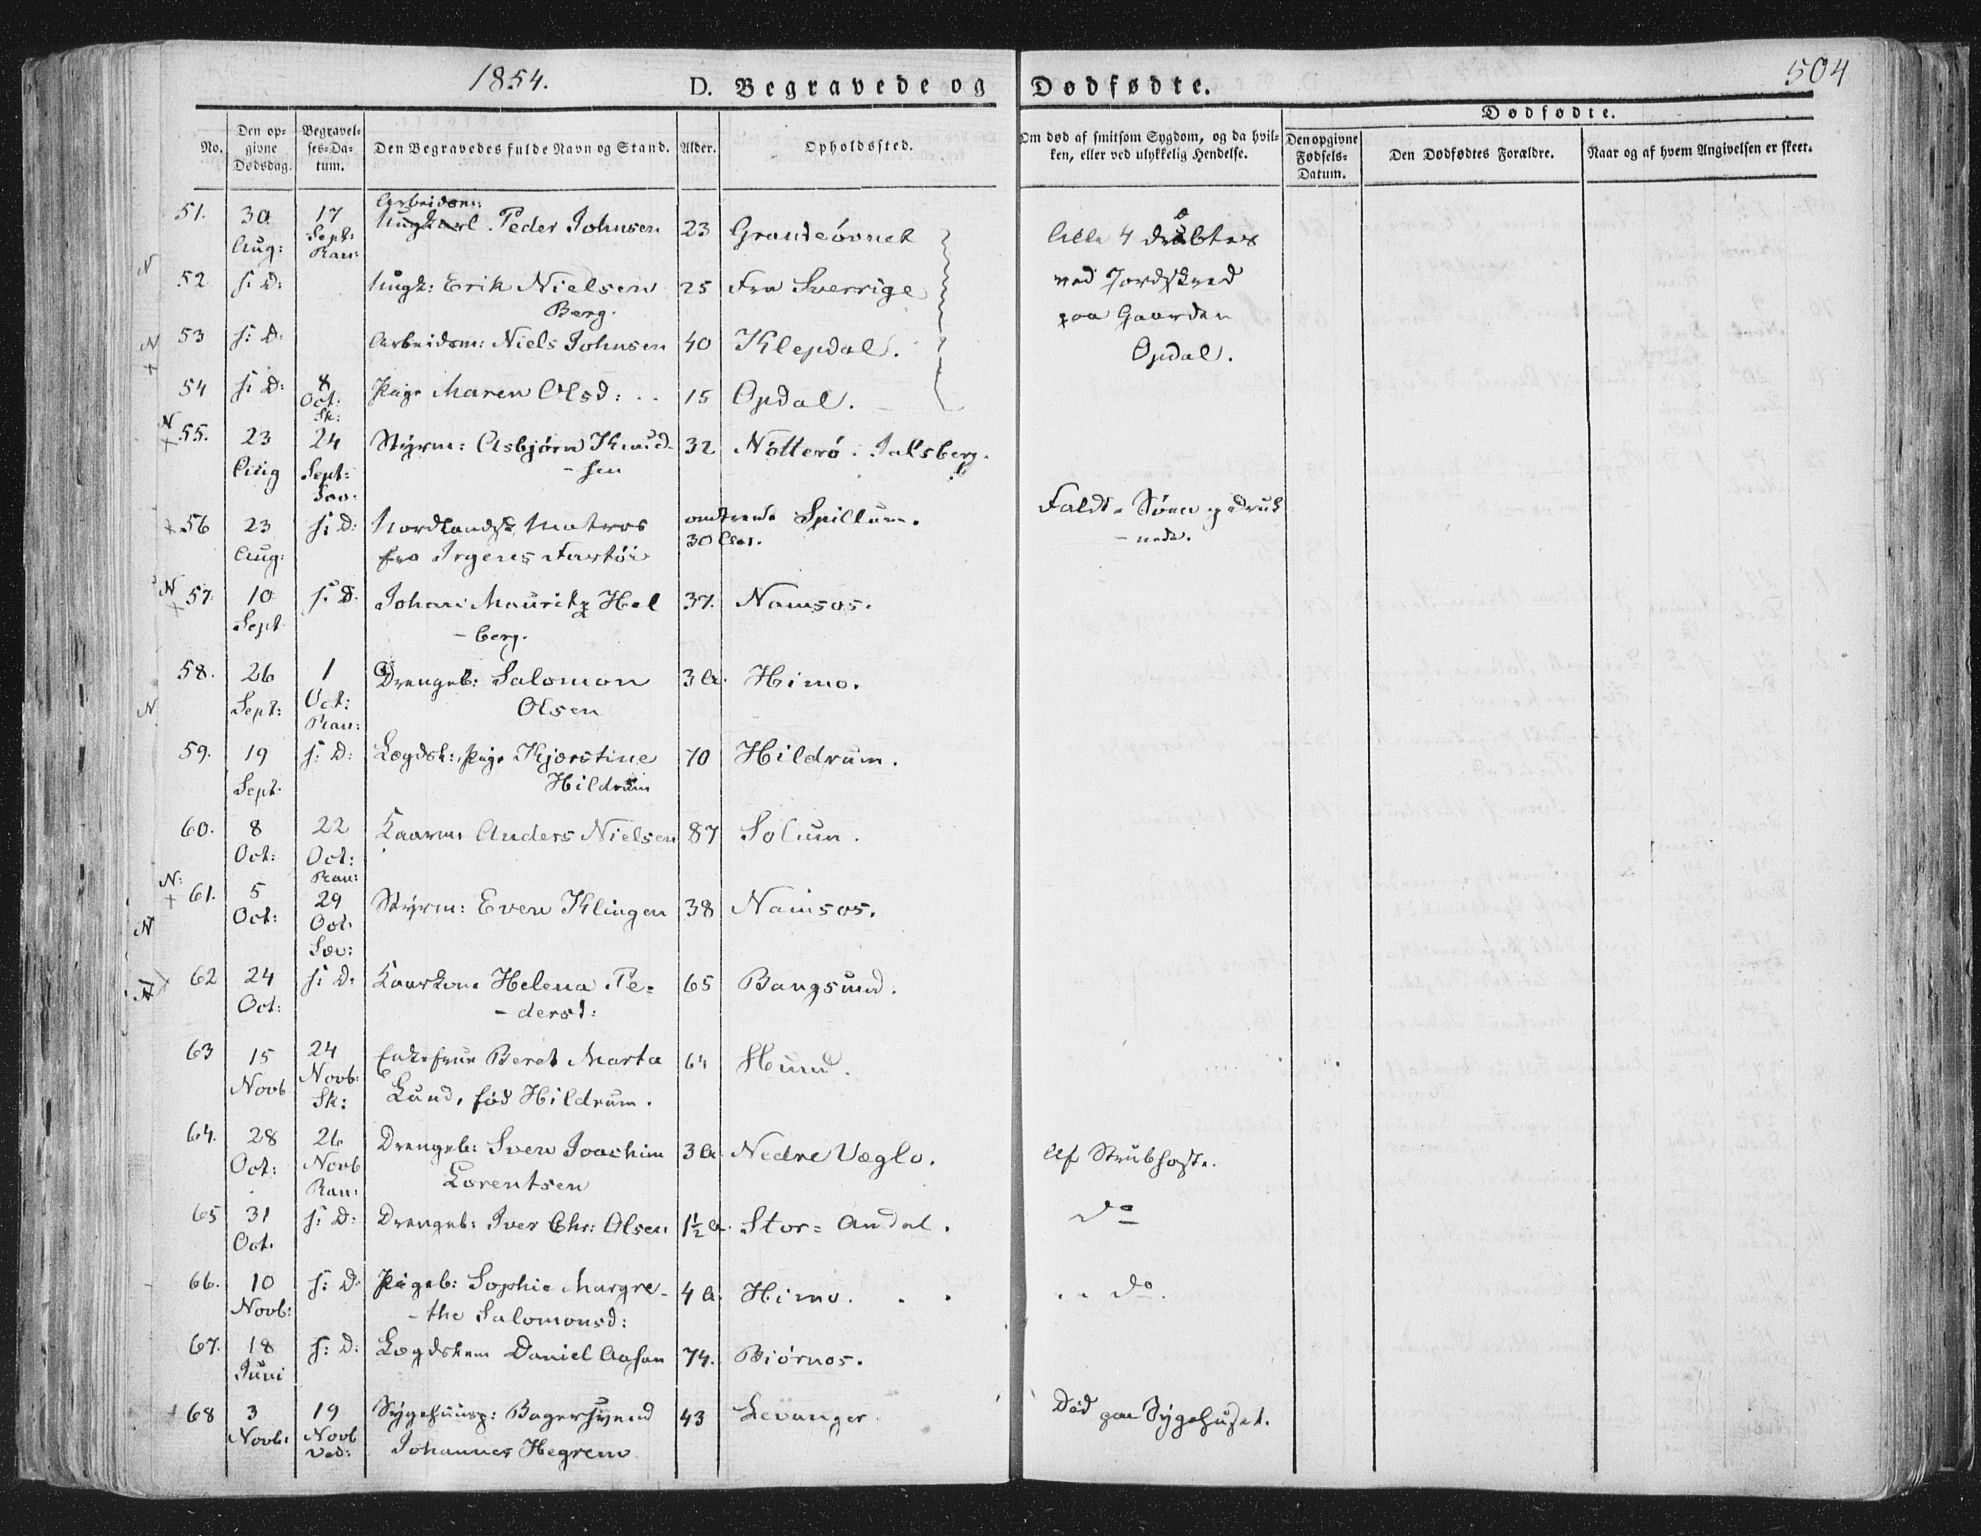 1854.
D. Begravede og Dødfødte.
504
No.
Den opgivne Dødsdag.
Begravelses-Datum.
Den Begravedes fulde Navn og Stand.
Alder.
Opholdssted.
Om død af smitsom Sygdom, og da hvilken, eller ved ulykkelig Hendelse.
Dødfødte.
Den opgivne Fødsels-Datum.
Den Dødfødtes Forældre.
Naar og af hvem Angivelsen er skeet.
51. 30 Aug: 17 Sept: Ran: Arbeidsm: Ungkarl Peder Johnsen 23 Grandeøvnet Alle 4 dræbtes
N 52 s: D: Ungk: Erik Nielsen Berg. 25 Fra Sverrige ved Jordskred
N 53 s: D: Arbeidsm: Niels Johnsen 40 Klepdal. paa Gaarden
+ 54 s: D: 8 Oct: Sk: Pige Maren Olsd: 15 Opdal. Opdal.
N + 55. 23 Aug 24 Sept: Styrm: Asbjørn Knud-
-sen 32 Nøtterø. Jalsberg.
+ 56 23 Aug: s: D: Nordlandsk Matros
fra Irgens Fartøi omtrent 30 Aar. Spillum. Faldt i Søen og druk-
-nede.
N + 57. 10 Sept. s: D: Johan Mauritz Hel
-berg. 37. Namsos.
58. 26 Sept: 1 Oct: Ran: Drengeb: Salomon
Olsen 3 a. Himo.
N
59. 19 Sept. s: D: Lægdsl: Pige Kjerstine
Hildrum 70 Hildrum.
60. 8 Oct: 22 Oct: Ran: Kaarm: Anders Nielsen 87 Solum.
N: + 61. 5 Oct: 29 Oct: Sæv: Styrm: Even Klingen 38 Namsos.
N
N 62 24 Oct: s: D: Kaarkone Helena Pe-
-dersd: 65 Bangsund.
63 15 Novb 24 Novb: Sk: Enkefrue Beret Marta
Lund, fød Hildrum. 64 Hund.
64. 28 Oct: 26 Novb Ran: Drengeb: Sven Joachim
Lorentsen 3 a. Nedre Vegło. Af Strubhoste.
65 31 Oct. s: D: Drengeb: Iver Chr: Olsen 1½ a. Stor-Andal. do
66. 10 Novb: s: D: Pigeb: Sophie Margre-
-the Salomonsd: 4 a. Himo. do.
67. 18 Juni s: D: Lægdslem Daniel Aasen 74. Biørnes.
+ 68 3 Novb: 19 Novb Ved: Sygehuusp: Bagersvend
Johannes Hegrem 43 Levanger. Død paa Sygehuset.